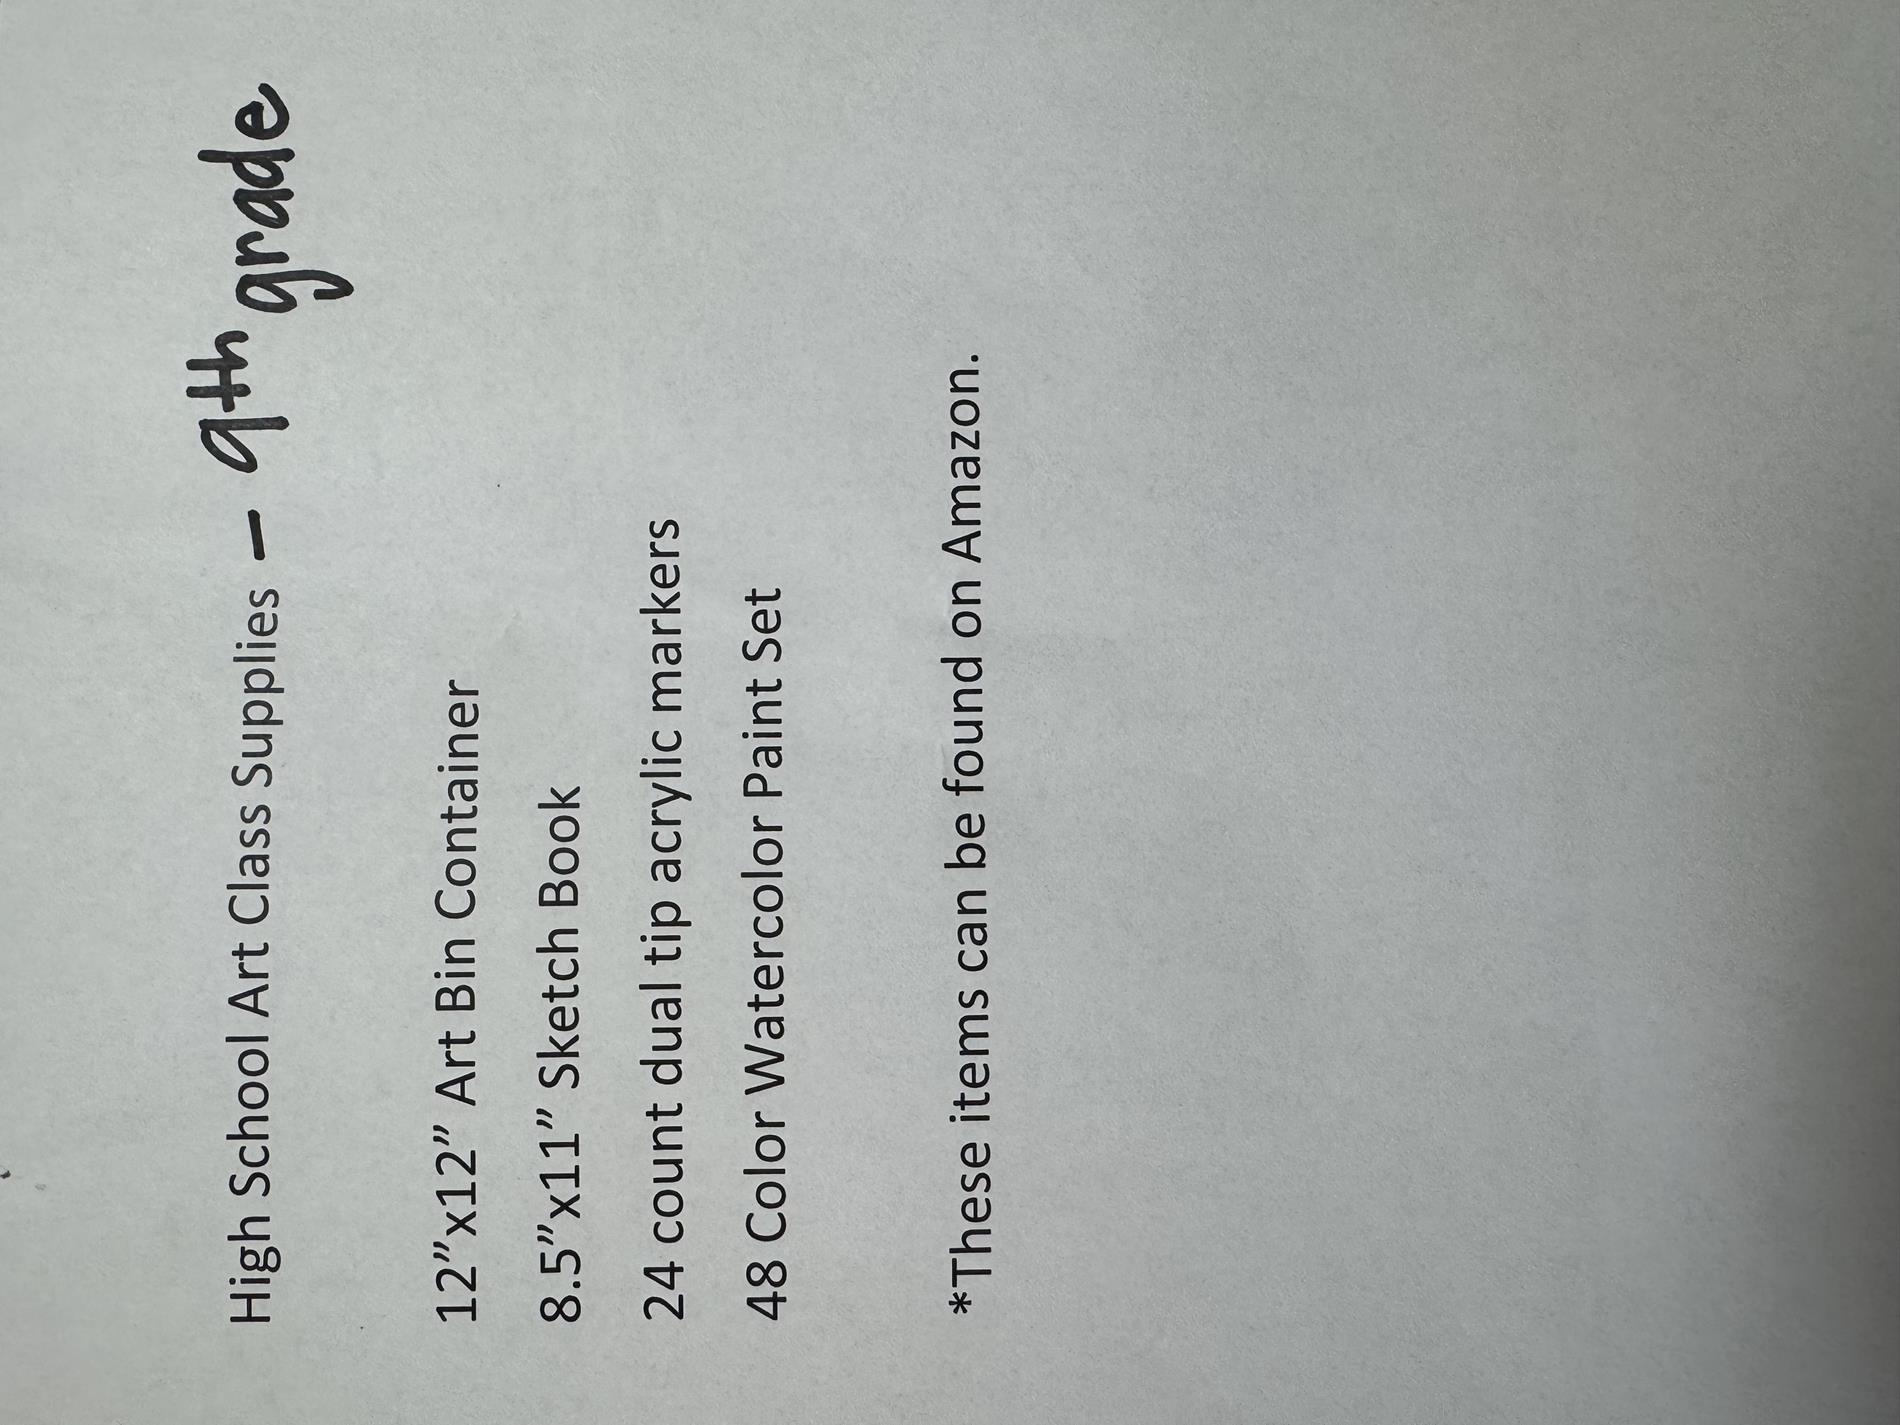 High School Art Class Supplies – 9th grade
12”x12” Art Bin Container
8.5”x11” Sketch Book
24 count dual tip acrylic markers
48 Color Watercolor Paint Set
*These items can be found on Amazon.